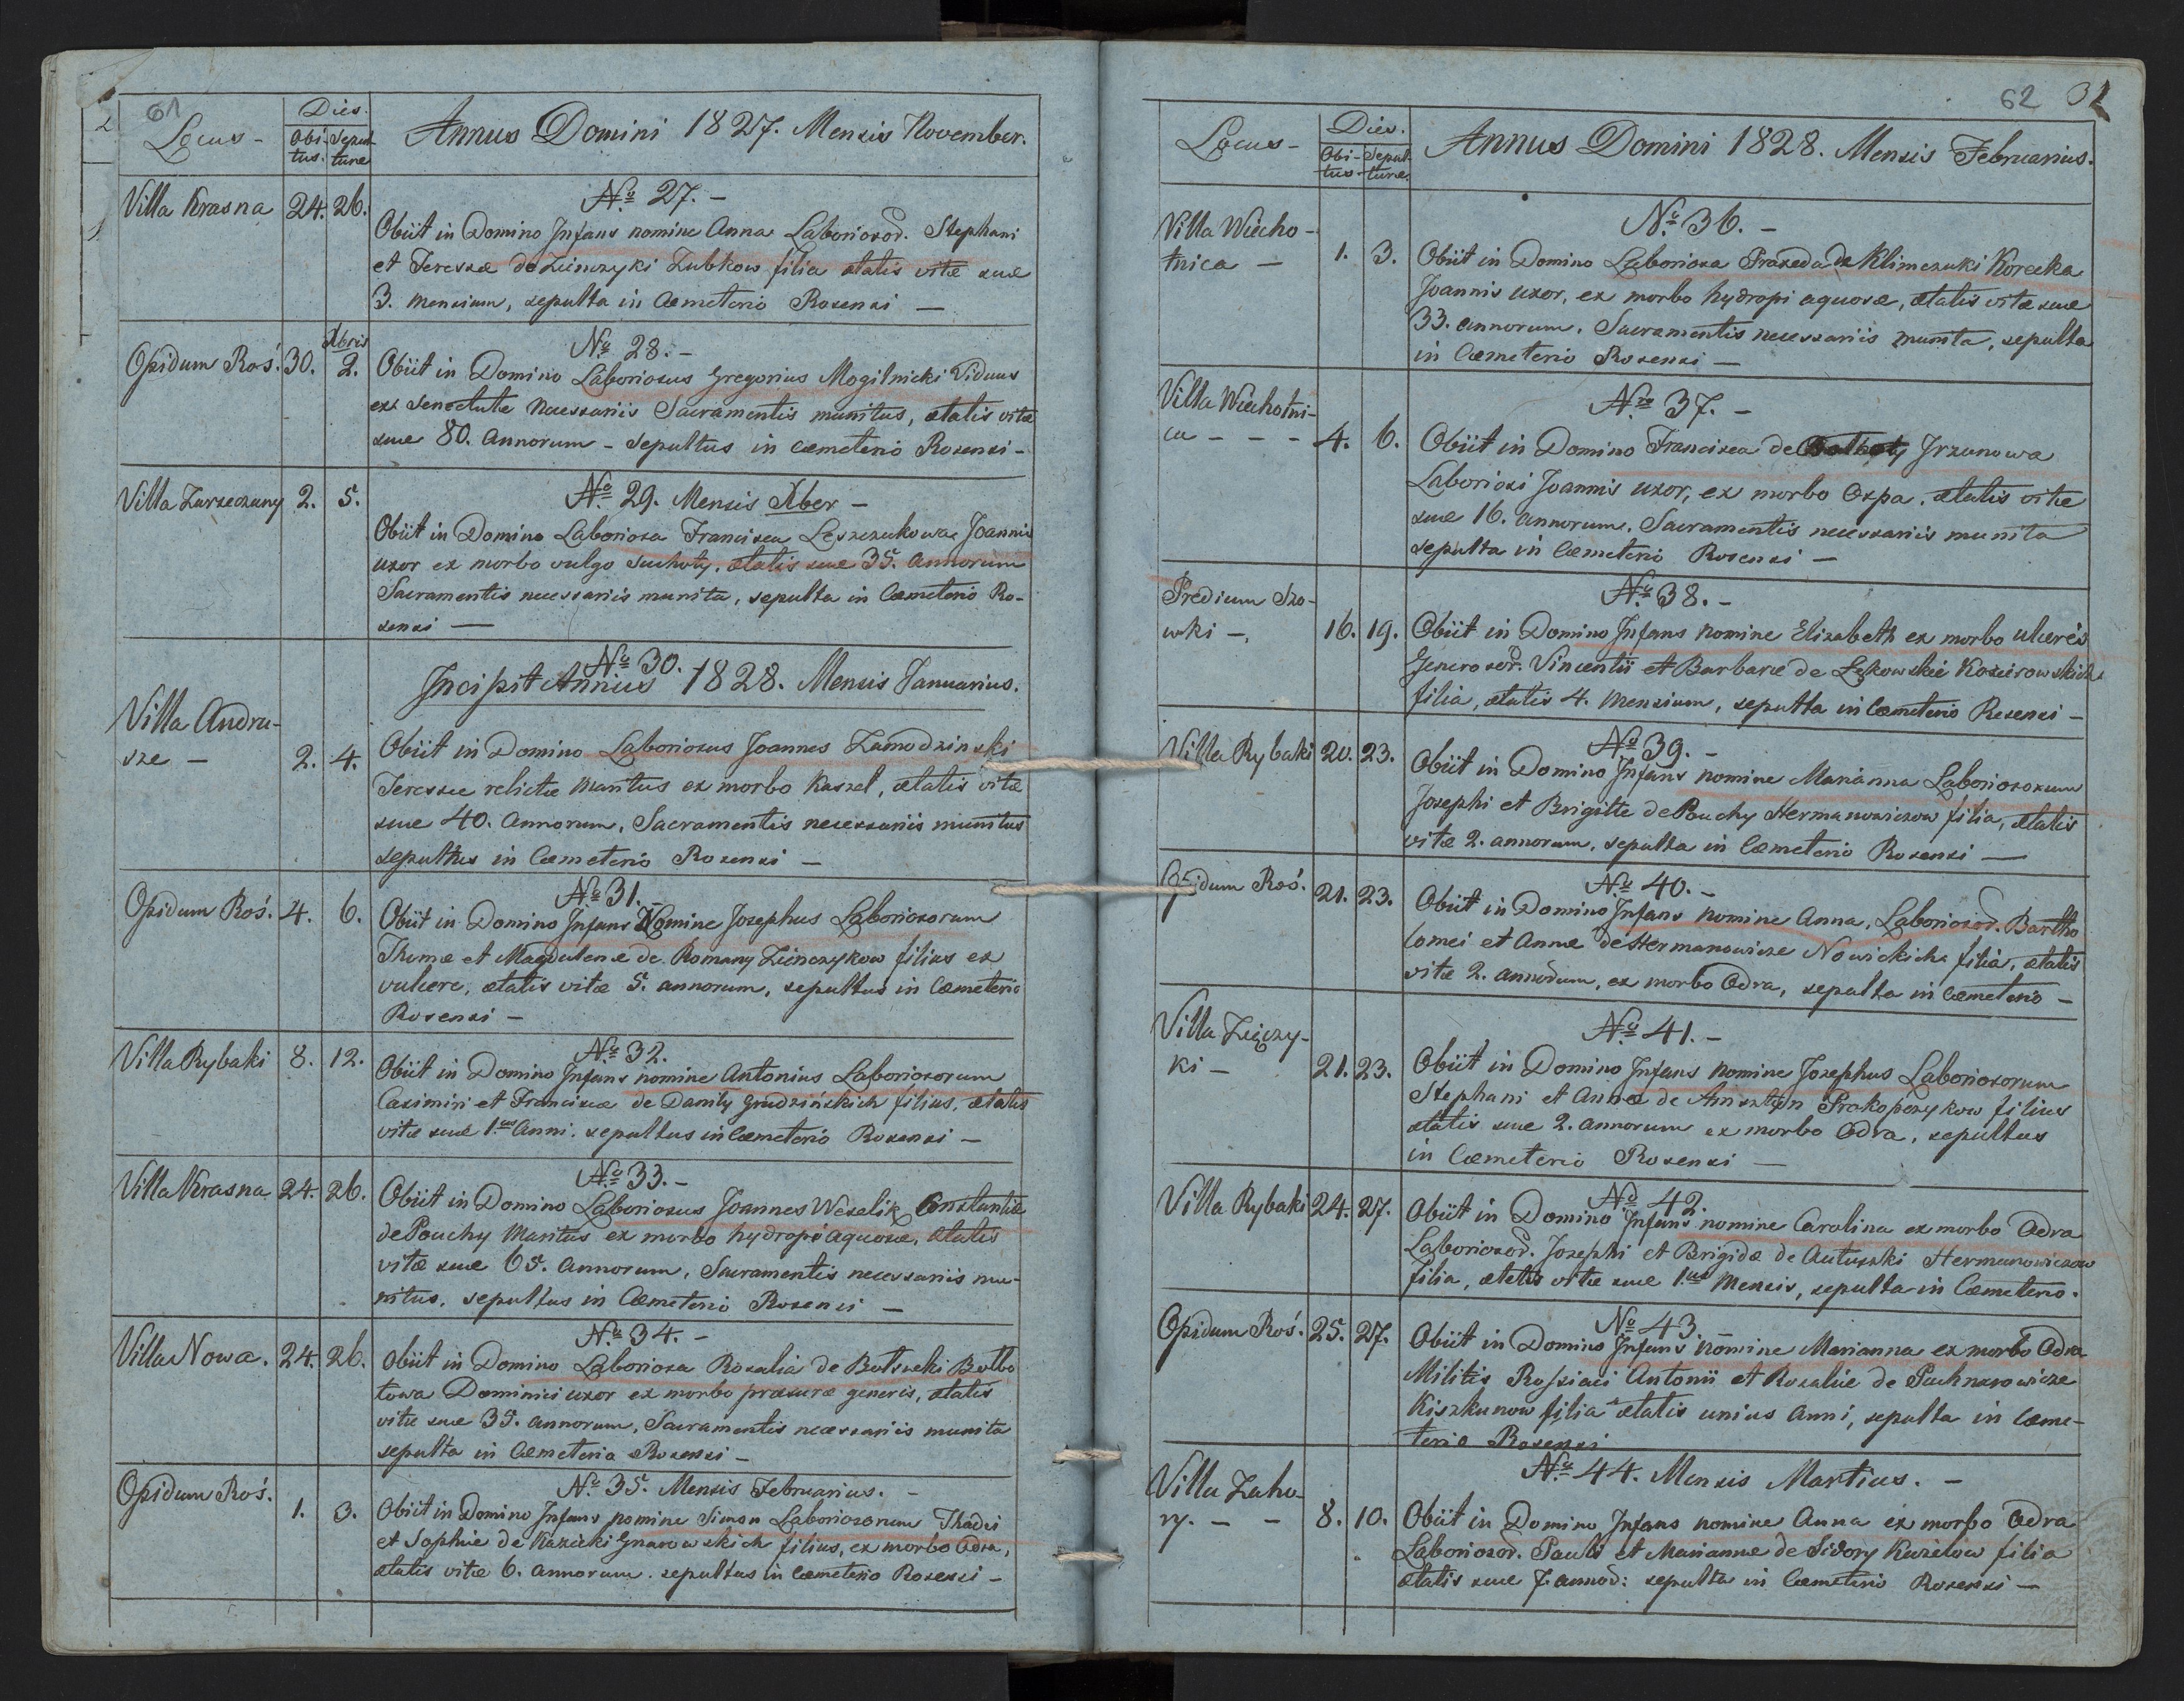 61
Locus - Dies. Obi-tus. Sepul-turæ Annus Domini 1827. Mensis November.
Villa Krasna 24. 26. No 27. -
Obiit in Domino Infans nomine Anna Laboriosor. Stephani
et Teressæ de Zienczyki Zubkow filia ætatis vitæ suæ
3. mensium, sepulta in Cæmeterio Rosensi —
Opidum Roś. 30. Xbris 2. No 28. -
Obiit in Domino Laboriosus Gregorius Mogilnicki Viduus
ex senectute necessariis Sacramentis munitus, ætatis vitæ
suæ 80. Annorum - sepultus in cæmeterio Rosensi -
Villa Zarzeczany 2. 5. No 29. Mensis Xber -
Obiit in Domino Laboriosa Francisca Leszczukowa Joannis
uxor ex morbo vulgo suchoty, ætatis suæ 35. Annorum
Sacramentis necessariis munita, sepulta in Cæmeterio Ro-
sensi —
No 30.
Incipit Annus 1828. Mensis Januarius.
Villa Andru-
sze - 2. 4. Obiit in Domino Laboriosus Joannes Zamodzinski
Teressæ relictæ maritus ex morbo kaszel, ætatis vitæ
suæ 40. Annorum, Sacramentis necessariis munitus
sepultus in Cæmeterio Rosensi —
Opidum Roś. 4. 6. No 31. -
Obiit in Domino Infans Nomine Josephus Laboriosorum
Thomæ et Magdalenæ de Romany Zienczykow filius ex
vulcere, ætatis vitæ 5. annorum, sepultus in Cæmeterio
Rosensi -
Villa Rybaki 8. 12. No 32.
Obiit in Domino Infans nomine Antonius Laboriosorum
Casimiri et Franciscæ de Daniły Grudzińskich filius, ætatis
vitæ suæ 1.us Anni. sepultus in Cæmeterio Rosensi -
Villa Krasna 24. 26. No 33. -
Obiit in Domino Laboriosus Joannes Weselik Constantiæ
de Pauchy Maritus ex morbo hydropi aquosæ, ætatis
vitæ suæ 65. Annorum, Sacramentis necessariis mu-
nitus, sepultus in Cæmeterio Rosensi —
Villa Nowa. 24. 26. No 34. -
Obiit in Domino Laboriosa Rosalia de Butszeki Bołbo
towa Dominici uxor ex morbo præsuræ generis, ætatis
vitæ suæ 35. annorum, Sacramentis necessariis munita
sepulta in Cæmeterio Rosensi -
Opidum Roś. 1. 3. No 35. Mensis Februarius. -
Obiit in Domino Infans nomine Simon Laboriosorum Thadei
et Sophiæ de Kazicki Gnarowskich filius, ex morbo Odra,
ætatis vitæ 6. Annorum. sepultus in Cæmeterio Rosensi -
62
Locus - Dies. Obi-tus. Sepul-turæ. Annus Domini 1828. Mensis Februarius.
Villa Wiecho-
tnica — 1. 3. No 36. -
Obiit in Domino Laboriosa Praxeda de Klimczuki Korecka
Joannis uxor, ex morbo hydropi aquosæ, ætatis vitæ suæ
33. annorum, Sacramentis necessariis munita, sepulta
in Cæmeterio Rosensi —
Villa Wiechotni-
ca - - - 4. 6. No 37. -
Obiit in Domino Francisca de Jrzunowa
Laboriosi Joannis uxor, ex morbo Ospa, ætatis vitæ
suæ 16. annorum, Sacramentis necessariis munita
sepulta in Cæmeterio Rosensi —
Prædium Szo-
wki -. 16. 19. No 38. -
Obiit in Domino Infans nomine Elisabeth ex morbo ulceris
Generosor. Vincentii et Barbaræ de Łękowskie Koscirowskich
filia, ætatis 4. mensium, sepulta in Cæmeterio Rosensi -
Villa Rybaki 20. 23. No 39. -
Obiit in Domino Infans nomine Marianna Laboriosorum
Josephi et Brigitte de Pauchy Hermanowiczow filia, ætatis
vitæ 2. annorum, sepulta in Cæmeterio Rosensi —
Opidum Roś. 21. 23. No 40. -
Obiit in Domino Infans nomine Anna, Laboriosor. Bartho
lomei et Annæ de Hermanowicze Nowickich filia, ætatis
vitæ 2. annorum, ex morbo Odra, sepulta in Cæmeterio -
Villa Zięczy-
ki - 21. 23. No 41. -
Obiit in Domino Infans nomine Josephus Laboriosorum
Stephani et Annæ de Prokopczykow filius
ætatis suæ 2. annorum ex morbo Odra, sepultus
in Cæmeterio Rosensi —
Villa Rybaki 24. 27. No 42.
Obiit in Domino Infans nomine Carolina ex morbo Odra
Laboriosor. Josephi et Brigidæ de Autuszki Hermanowiczow
filia, ætatis vitæ suæ 1.us Mensis, sepulta in Cæmeterio.
Opidum Roś. 25. 27. No 43. -
Obiit in Domino Infans nomine Marianna ex morbo Odra
Militis Rossiaci Antonii et Rosaliæ de Puchnarowicze
Kiszkunow filia ætatis unius anni, sepulta in Cæme-
terio Rosensi
Villa Zaho-
ry. - - 8. 10. No 44. Mensis Martius. -
Obiit in Domino Infans nomine Anna ex morbo Odra
Laboriosor. Pauli et Mariannæ de Sidory Kuzelow filia
ætatis suæ 7. annor: sepulta in Cæmeterio Rosensi —